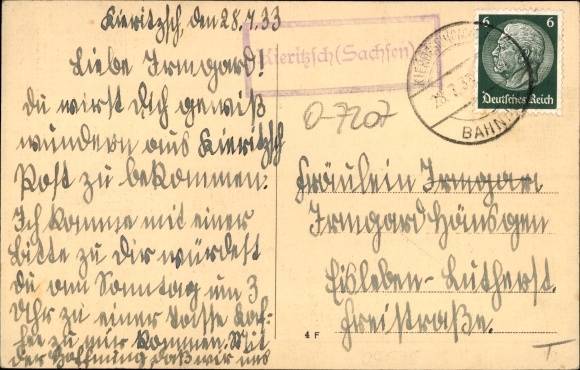 Kieritzsch, den 28.7.33
Liebe Irmgard!
du wirst dich gewiß
wundern aus Kieritzsch
Post zu bekommen.
Ich komme mit einer
Bitte zu dir würdest
du am Sonntag um 3
Uhr zu einer Tasse Kaf-
fee zu mir kommen. Mit
der Hoffnung daß wir uns
Kieritzsch (Sachsen)
0-7207
28.7.33
BAHNH
6 6
Deutsches Reich
Fräulein Irmgar
Irmgard Hänsgen
Eisleben-Lutherst.
Freistraße.
4 F